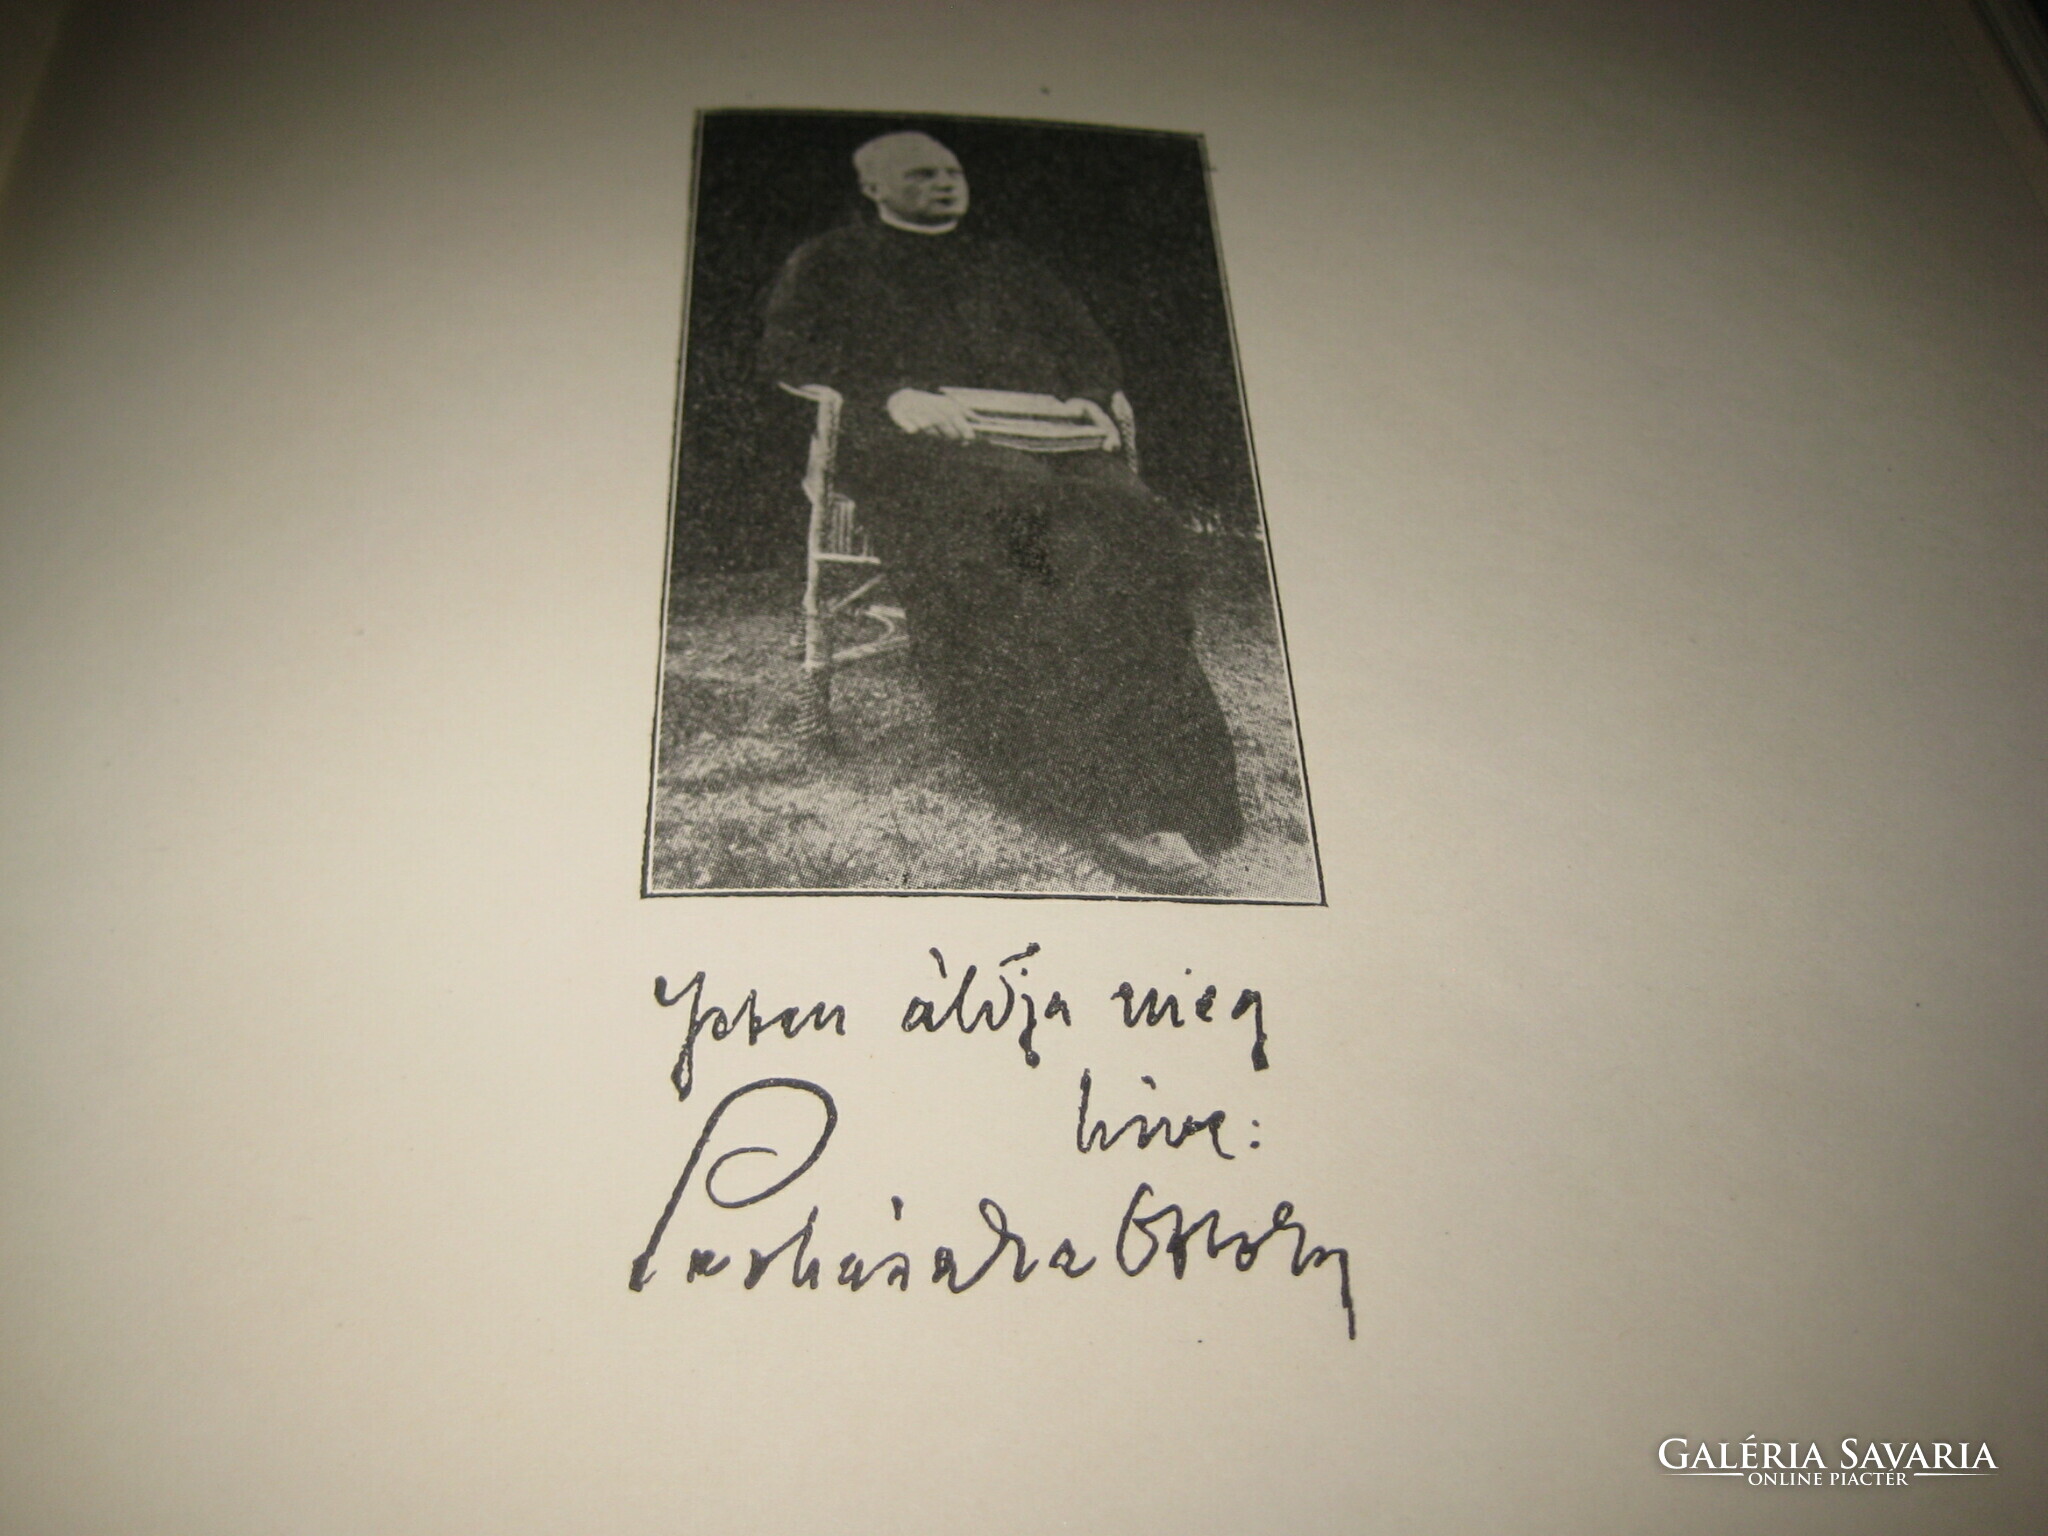 Isten áldja meg
híve:
Prohászka Ottokár
GALÉRIA SAVARIA
ONLINE PIACTÉR